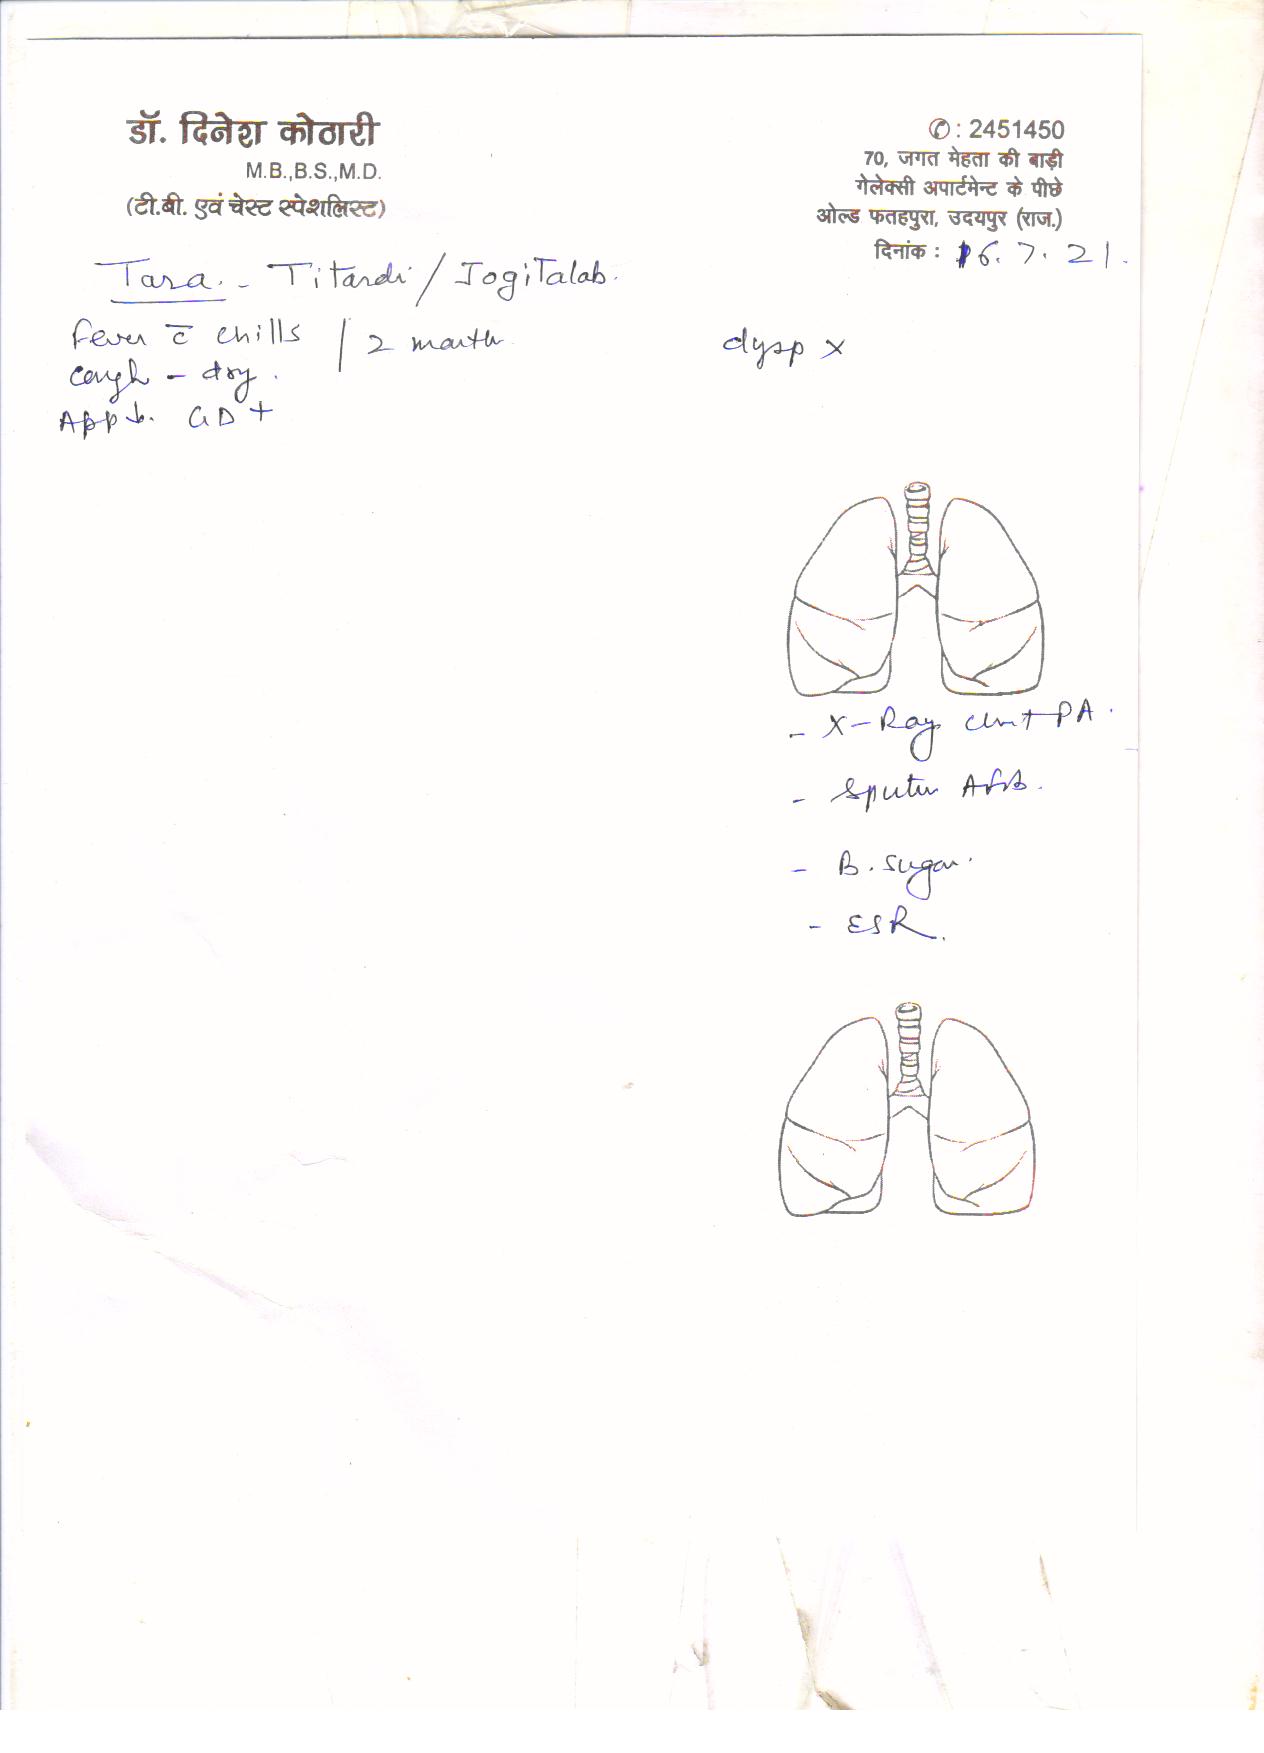 डॉ. दिनेश कोठारी
M.B.,B.S.,M.D.
(टी.बी. एवं चेस्ट स्पेशलिस्ट)
✆ : 2451450
70, जगत मेहता की बाड़ी
गेलेक्सी अपार्टमेन्ट के पीछे
ओल्ड फतहपुरा, उदयपुर (राज.)
दिनांक : 16.7.21.
Tara. - Titardi / JogiTalab.
Fever c̅ chills / 2 month
Cough - dry.
App ↓. GD +
dysp x
- X-Ray Chest PA.
- Sputum AFB.
- B. Sugar.
- ESR.